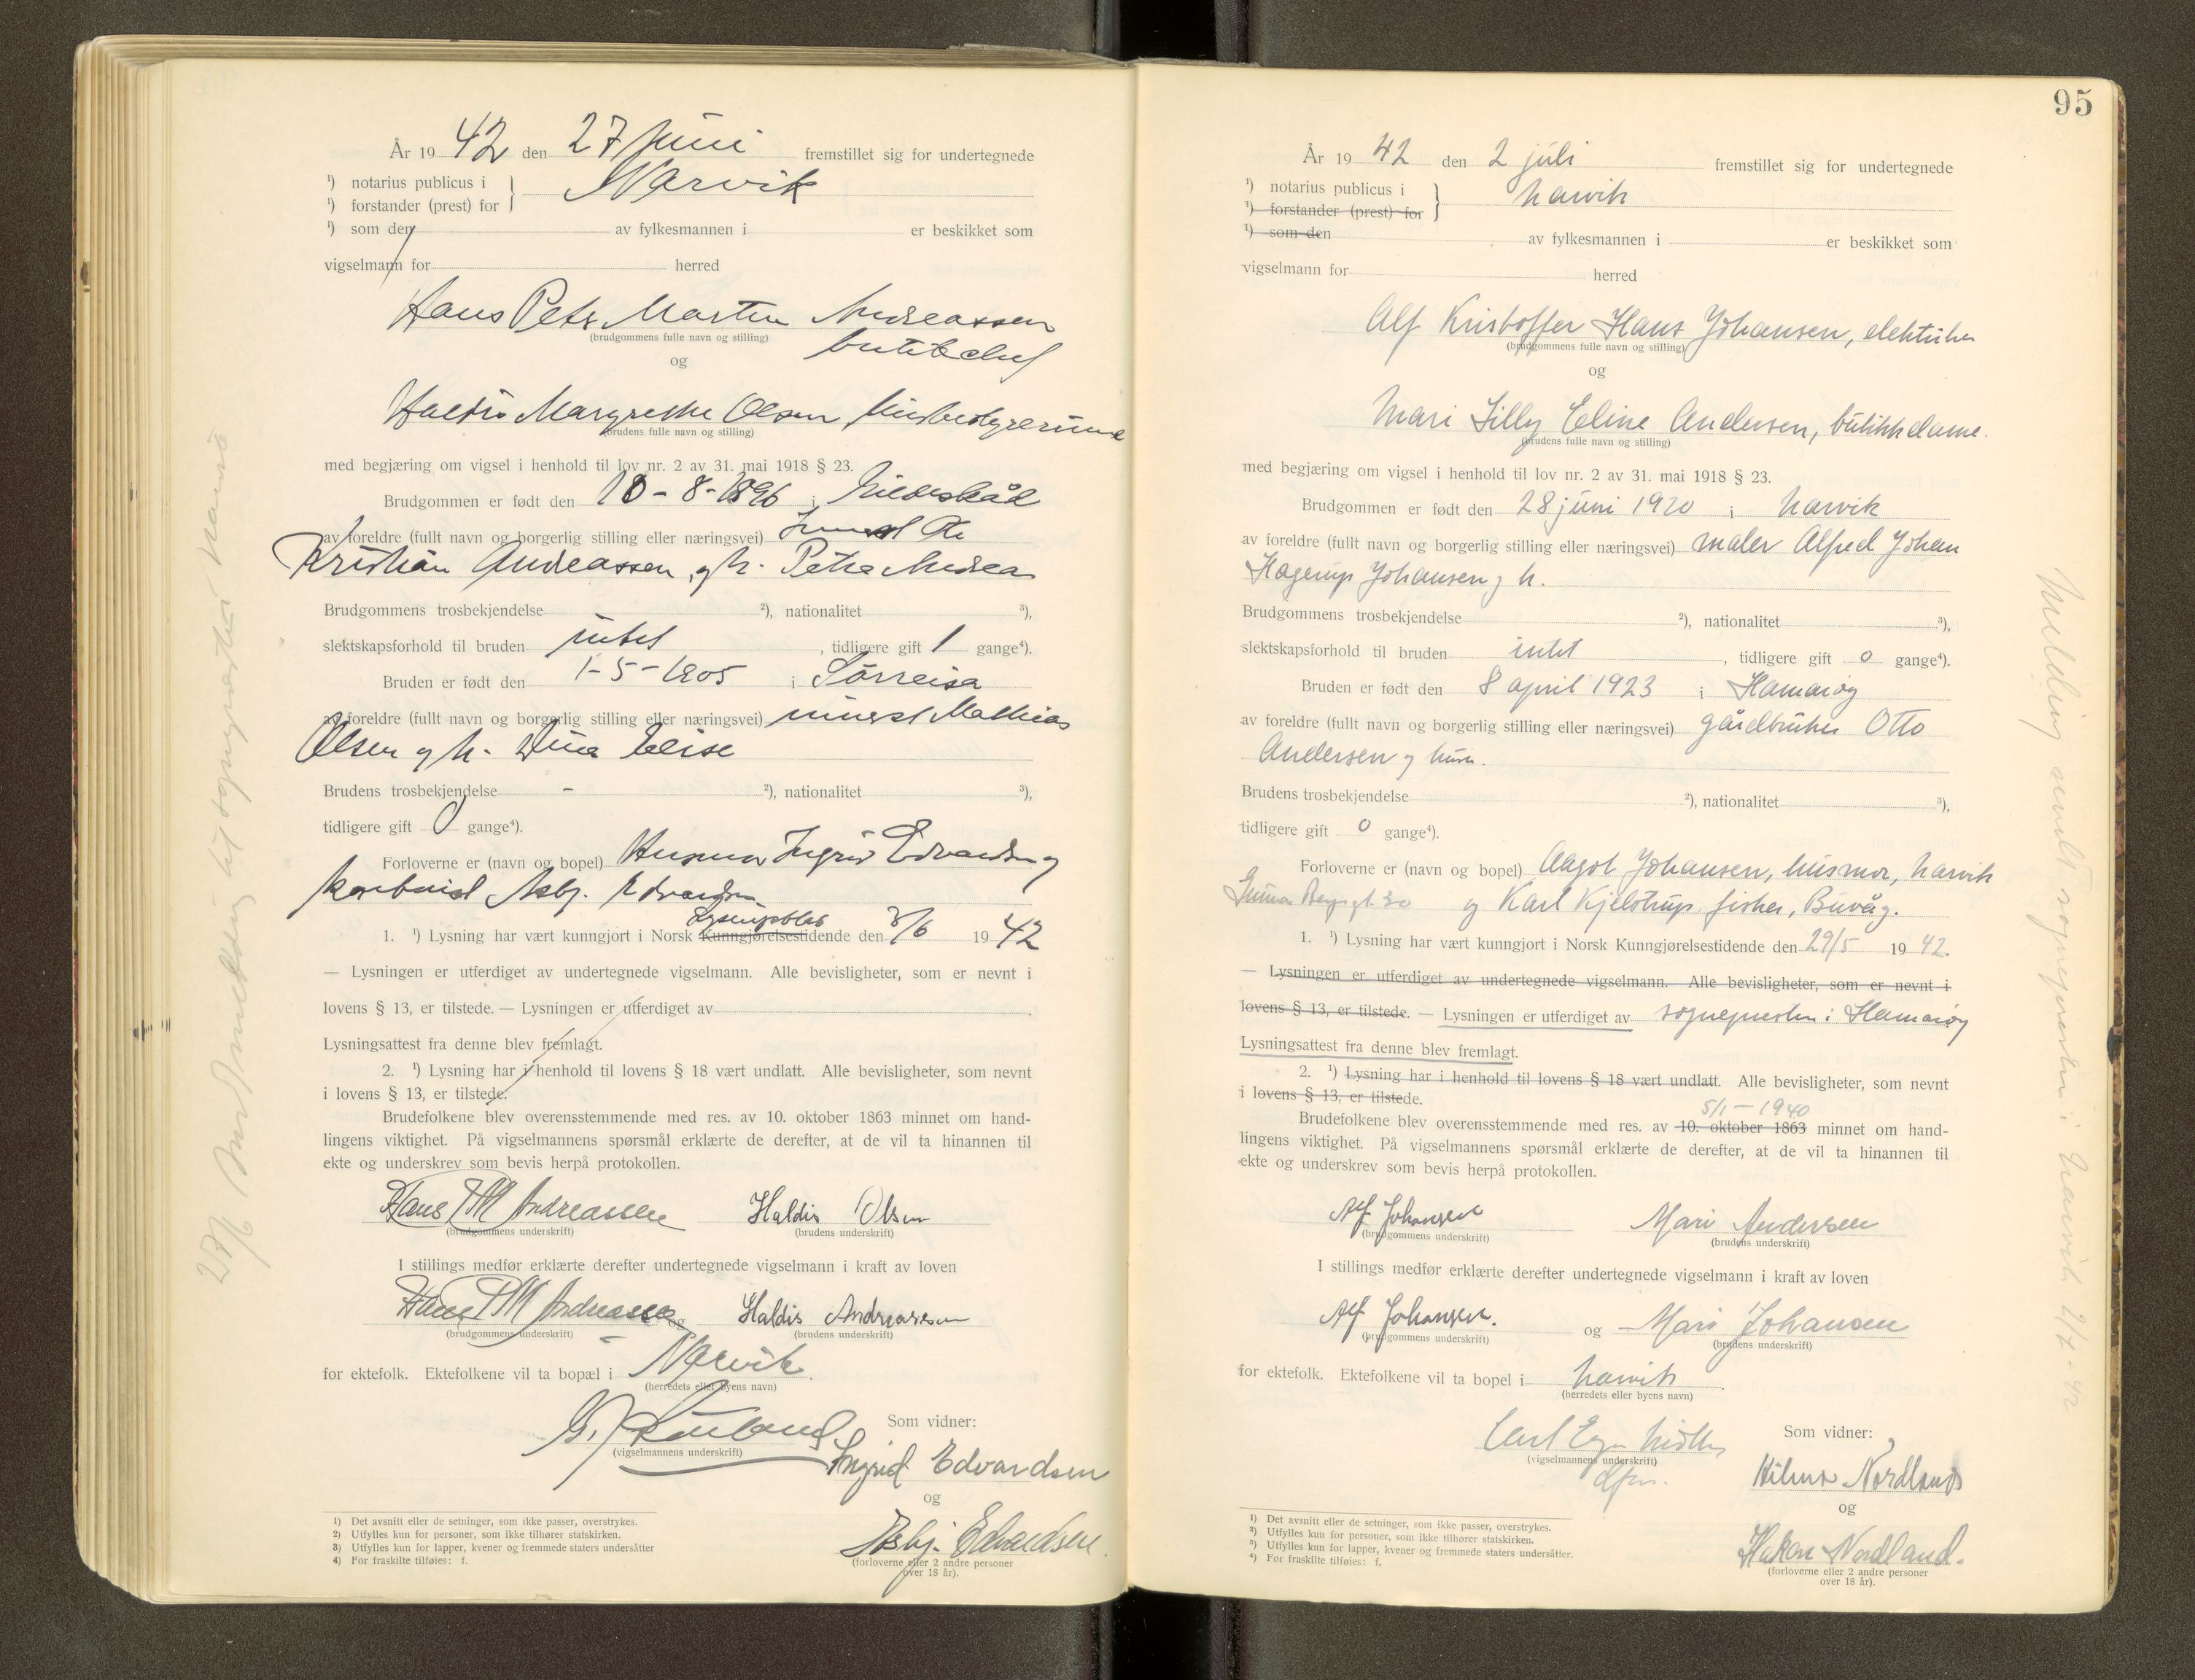 År 19 42 den 27 Juni fremstillet sig for undertegnede
¹) notarius publicus i } Narvik
¹) forstander (prest) for
¹) som den av fylkesmannen i er beskikket som
vigselmann for herred
Hans Peter Martin Andreassen
(brudgommens fulle navn og stilling)
og
Haldis Margrethe Olsen, husbestyrerinne
(brudens fulle navn og stilling)
med begjæring om vigsel i henhold til lov nr. 2 av 31. mai 1918 § 23.
Brudgommen er født den 10-8-1896 i Gildeskål
av foreldre (fullt navn og borgerlig stilling eller næringsvei)
Kristian Andreassen og h. Petra Andrea
Brudgommens trosbekjendelse ²), nationalitet ³),
slektskapsforhold til bruden intet, tidligere gift 1 gange⁴).
Bruden er født den 1-5-1905 i Sørreisa
av foreldre (fullt navn og borgerlig stilling eller næringsvei) Mathias
Olsen og h. Elise
Brudens trosbekjendelse - ²), nationalitet ³),
tidligere gift 0 gange⁴).
Forloverne er (navn og bopel) Husmor Ingrid Edvardsen og
Asbj. Edvardsen
Lysningsblad
1. ¹) Lysning har vært kunngjort i Norsk Kunngjørelsestidende den 3/6 19 42
— Lysningen er utferdiget av undertegnede vigselmann. Alle bevisligheter, som er nevnt i
lovens § 13, er tilstede. — Lysningen er utferdiget av .
Lysningsattest fra denne blev fremlagt.
2. ¹) Lysning har i henhold til lovens § 18 vært undlatt. Alle bevisligheter, som nevnt
i lovens § 13, er tilstede.
Brudefolkene blev overensstemmende med res. av 10. oktober 1863 minnet om hand-
lingens viktighet. På vigselmannens spørsmål erklærte de derefter, at de vil ta hinannen til
ekte og underskrev som bevis herpå protokollen.
Hans P M Andreassen Haldis Olsen
(brudgommens underskrift) (brudens underskrift)
I stillings medfør erklærte derefter undertegnede vigselmann i kraft av loven
Hans P M Andreassen og Haldis Andreassen
(brudgommens underskrift) (brudens underskrift)
for ektefolk. Ektefolkene vil ta bopæl i Narvik.
(herredets eller byens navn)
Som vidner:
(vigselmannens underskrift)
Ingrid Edvardsen
og
Asbj. Edvardsen.
(forloverne eller 2 andre personer
over 18 år).
1) Det avsnitt eller de setninger, som ikke passer, overstrykes.
2) Utfylles kun for personer, som ikke tilhører statskirken.
3) Utfylles kun for lapper, kvener og fremmede staters undersåtter
4) For fraskilte tilføies: f.
95
År 19 42 den 2 juli fremstillet sig for undertegnede
¹) notarius publicus i } Narvik
¹) forstander (prest) for
¹) som den av fylkesmannen i er beskikket som
vigselmann for herred
Alf Kristoffer Hans Johansen, elektriker
(brudgommens fulle navn og stilling)
og
Mari Lilly Eline Andersen, butikkdame.
(brudens fulle navn og stilling)
med begjæring om vigsel i henhold til lov nr. 2 av 31. mai 1918 § 23.
Brudgommen er født den 28 juni 1920 i Narvik
av foreldre (fullt navn og borgerlig stilling eller næringsvei) maler Alfred Johan
Hagerup Johansen og h.
Brudgommens trosbekjendelse ²), nationalitet ³),
slektskapsforhold til bruden intet, tidligere gift 0 gange⁴).
Bruden er født den 8 april 1923 i Hamarøy
av foreldre (fullt navn og borgerlig stilling eller næringsvei) gårdbruker Otto
Andersen og hustru.
Brudens trosbekjendelse ²), nationalitet ³),
tidligere gift 0 gange⁴).
Forloverne er (navn og bopel) Aagot Johansen, husmor, Narvik
og Karl Kjelstrup, fisker, Buvåg.
1. ¹) Lysning har vært kunngjort i Norsk Kunngjørelsestidende den 29/5 19 42.
— Lysningen er utferdiget av undertegnede vigselmann. Alle bevisligheter, som er nevnt i
lovens § 13, er tilstede. — Lysningen er utferdiget av sognepresten i Hamarøy
Lysningsattest fra denne blev fremlagt.
2. ¹) Lysning har i henhold til lovens § 18 vært undlatt. Alle bevisligheter, som nevnt
i lovens § 13, er tilstede.
5/1 - 1940
Brudefolkene blev overensstemmende med res. av 10. oktober 1863 minnet om hand-
lingens viktighet. På vigselmannens spørsmål erklærte de derefter, at de vil ta hinannen til
ekte og underskrev som bevis herpå protokollen.
Alf Johansen Mari Andersen
(brudgommens underskrift) (brudens underskrift)
I stillings medfør erklærte derefter undertegnede vigselmann i kraft av loven
Alf Johansen. og Mari Johansen
(brudgommens underskrift) (brudens underskrift)
for ektefolk. Ektefolkene vil ta bopel i Narvik.
(herredets eller byens navn)
Som vidner:
(vigselmannens underskrift)
Hilmar Nordland
og
Håkon Nordland.
(forloverne eller 2 andre personer
over 18 år).
1) Det avsnitt eller de setninger, som ikke passer, overstrykes.
2) Utfylles kun for personer, som ikke tilhører statskirken.
3) Utfylles kun for lapper, kvener og fremmede staters undersåtter.
4) For fraskilte tilføies: f.
Melding sendt sognepresten i Narvik 2/7-42